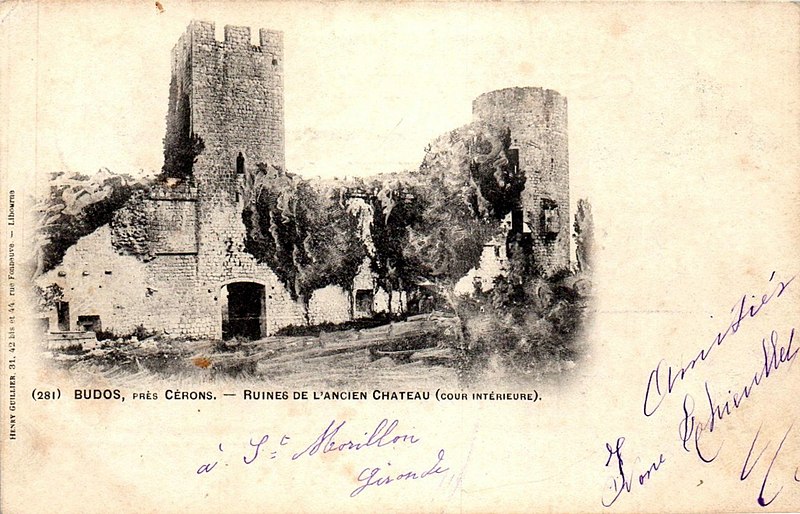 HENRY GUILLIER, 31, 42 bis et 44, rue Fonneuve — Libourne
(281) BUDOS, PRÈS CÉRONS. — RUINES DE L'ANCIEN CHATEAU (COUR INTÉRIEURE).
à Sᵗᵉ Morillon
Gironde
Amitiés